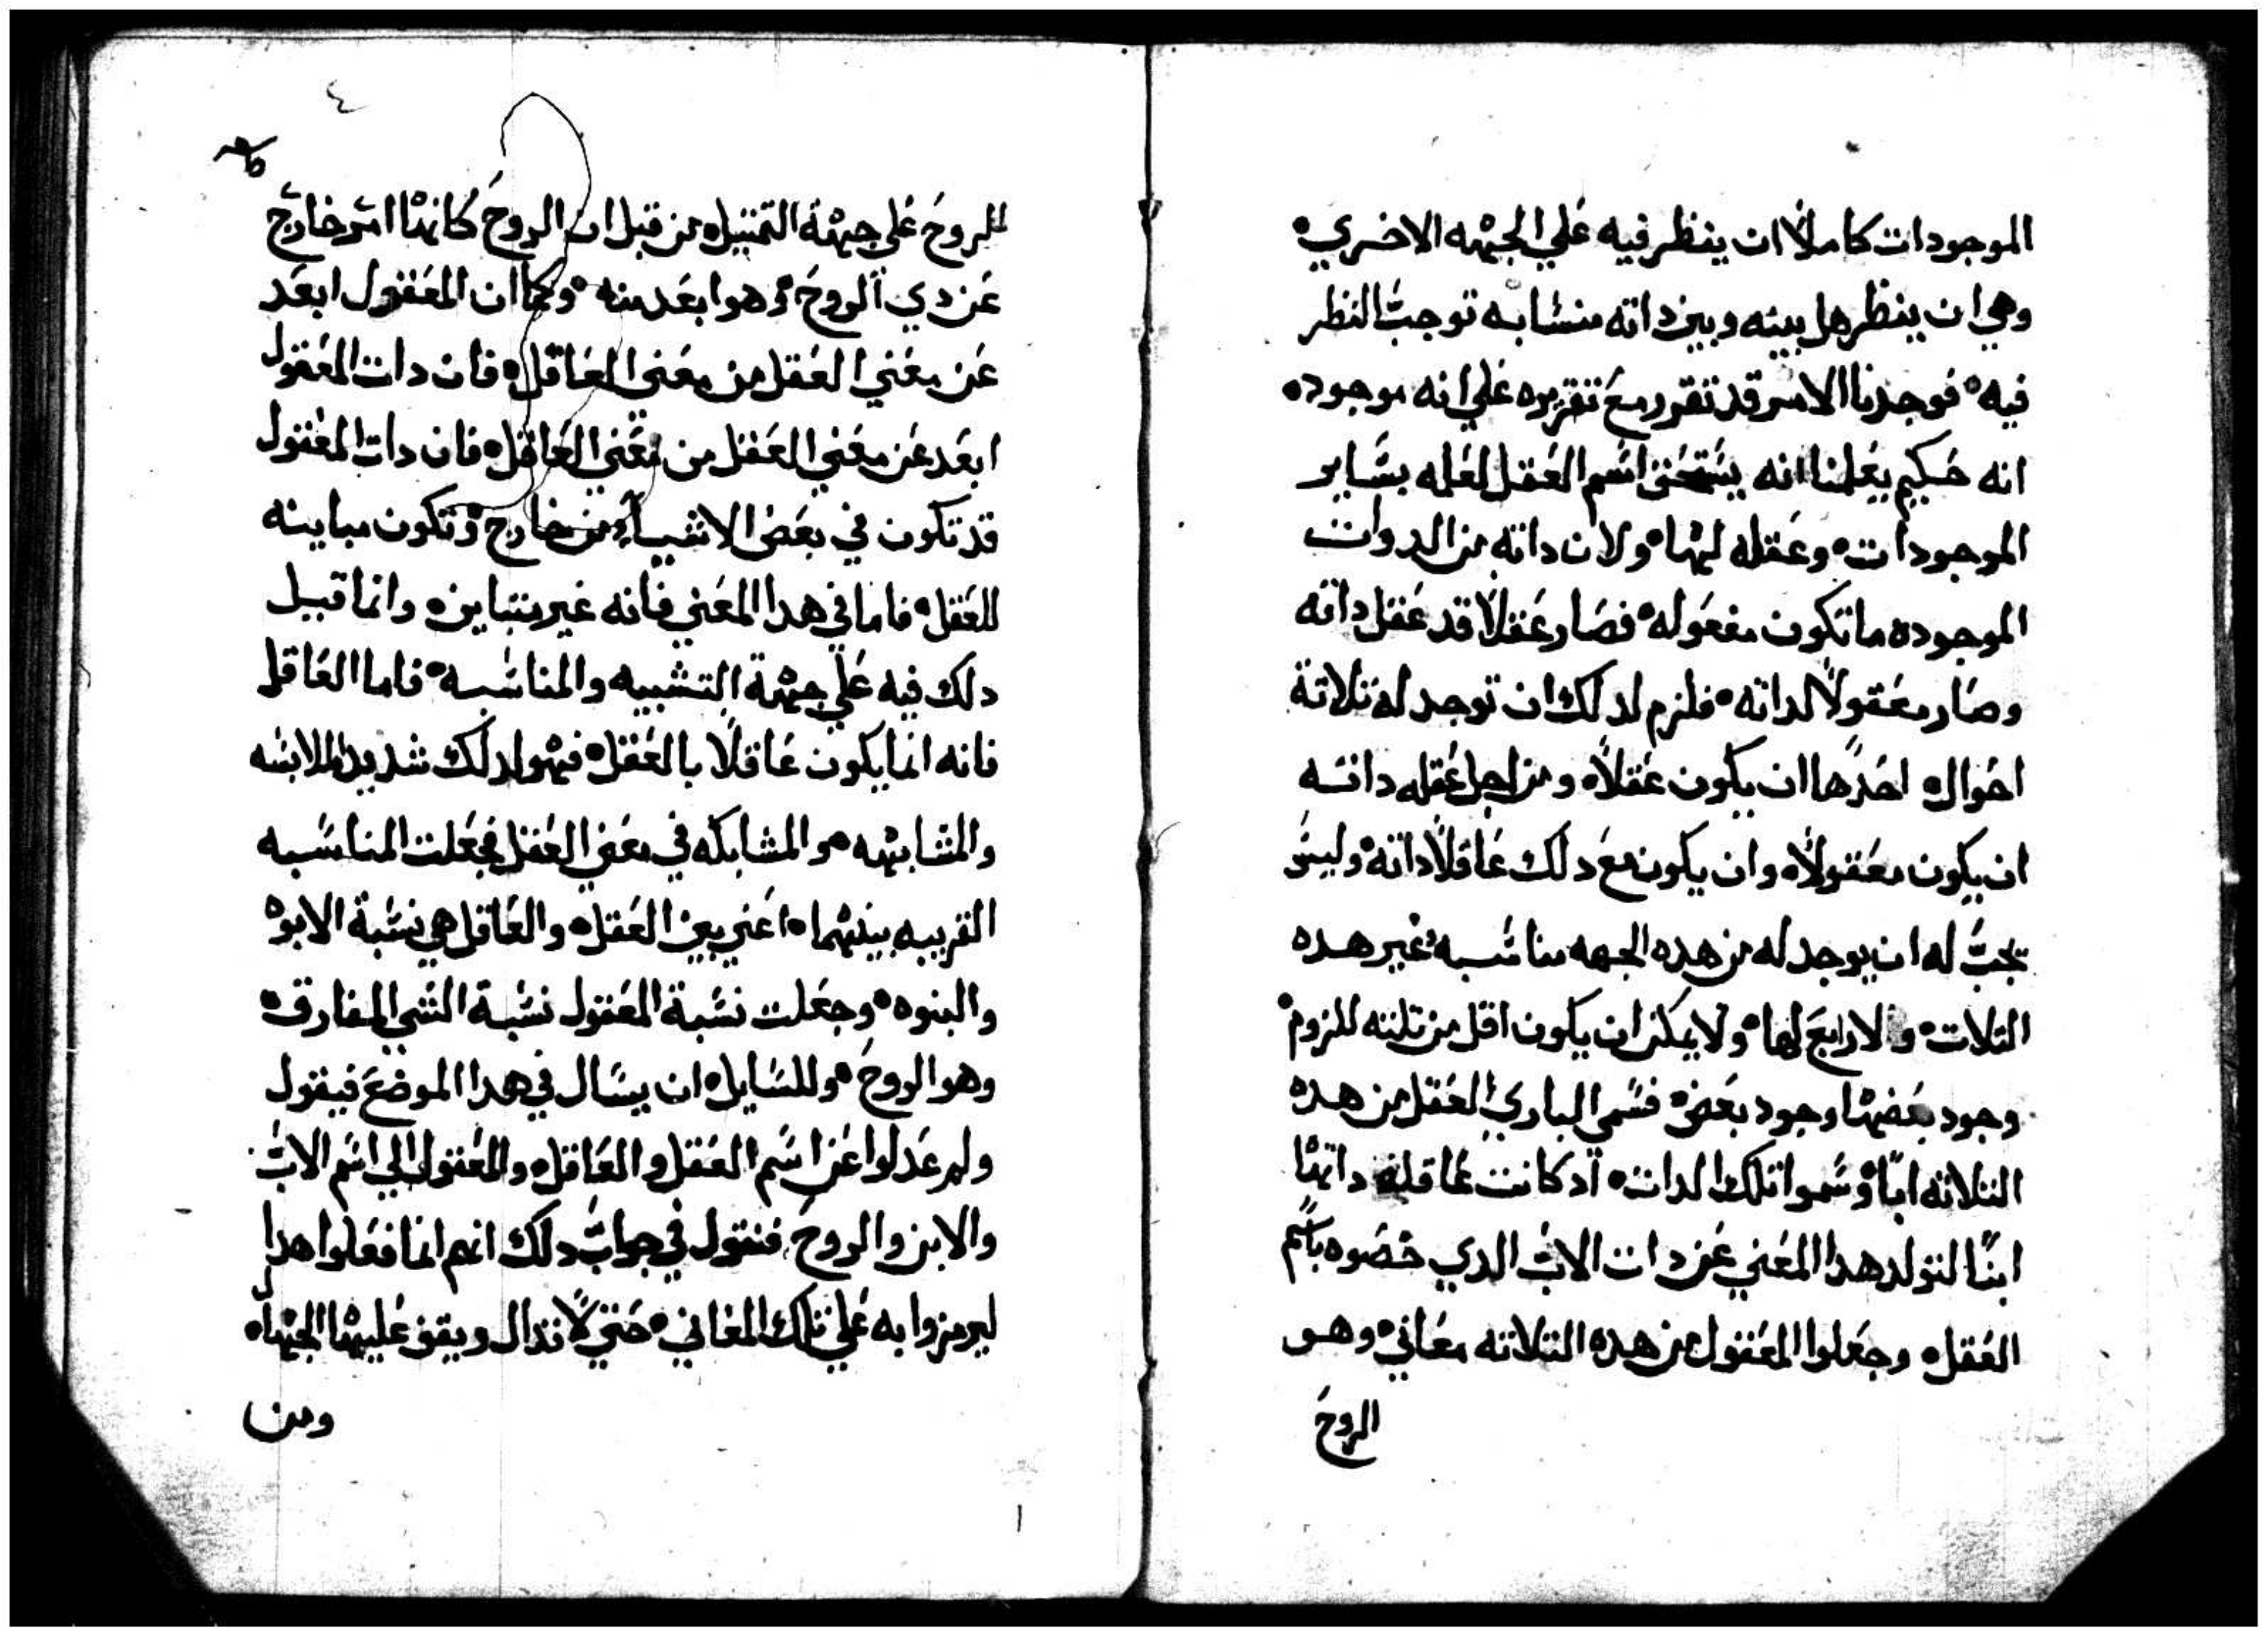 الموجودات كاملاً ان ينظر فيه علي الجهه الاخري
وهي ان ينظر هل بينه وبين داته منشابه توجب النظر
فيه فوجدنا الامر قد تقرر مع تقريره علي انه موجوده
انه حكيم يعلمنا انه يستحق اسم العقل لعلمه بساير
الموجودات وعقله لها ولان داته من الدوات
الموجوده ما تكون مفعوله فصار عقلاً قد عقل داته
وصار معقولاً لداته فلزم لدلك ان توجد له تلاتة
احوال احدها ان يكون عقلاً ومن اجل عقله داته
ان يكون معقولاً وان يكون مع دلك عاقلاً داته وليس
يجب له ان يوجد له من هده الجهه مناسبه غير هده
التلات ولا رابع لها ولا يمكن ان يكون اقل من تلته للزوم
وجود بعضها وجود بعض فسمي الباري العقل من هده
التلاته ابًا وسموا تلك الدات اد كانت عاقله داتها
ابنًا لتولد هدا المعني عن دات الاب الدي خصوه باسم
العقل وجعلوا المعقول من هده التلاته معاني وهو
الروح
٤
للروح علي جهة التمتيل من قبل ان الروح كانها امر خارج
عن دي الروح وهو ابعد منه وكما ان المعقول ابعد
عن معني العقل من معني العاقل فان دات المعقول
ابعد عن معني العقل من معني العاقل فان دات المعقول
قد تكون في بعض الاشياء من خارج وتكون مباينه
للعقل فاما في هدا المعني فانه غير متباين وانما قيل
دلك فيه علي جهة التشبيه والمناسبه فاما العاقل
فانه انما يكون عاقلاً بالعقل فهو لدلك شديد الملابسه
والمشابهه والمشابكه في معني العقل فجعلت المناسبه
القريبه بينهما اعني بين العقل والعاقل هي نسبة الابوه
والبنوه وجعلت نسبة المعقول نسبة الشي المفارق
وهو الروح وللسايل ان يسال في هدا الموضع فيقول
ولم عدلوا عن اسم العقل والعاقل والمعقول الي اسم الاب
والابن والروح فنقول في جواب دلك انهم انما فعلوا هدا
ليرمزوا به علي تلك المعاني حتي لا تدال ويقف عليها الجهال
ومن